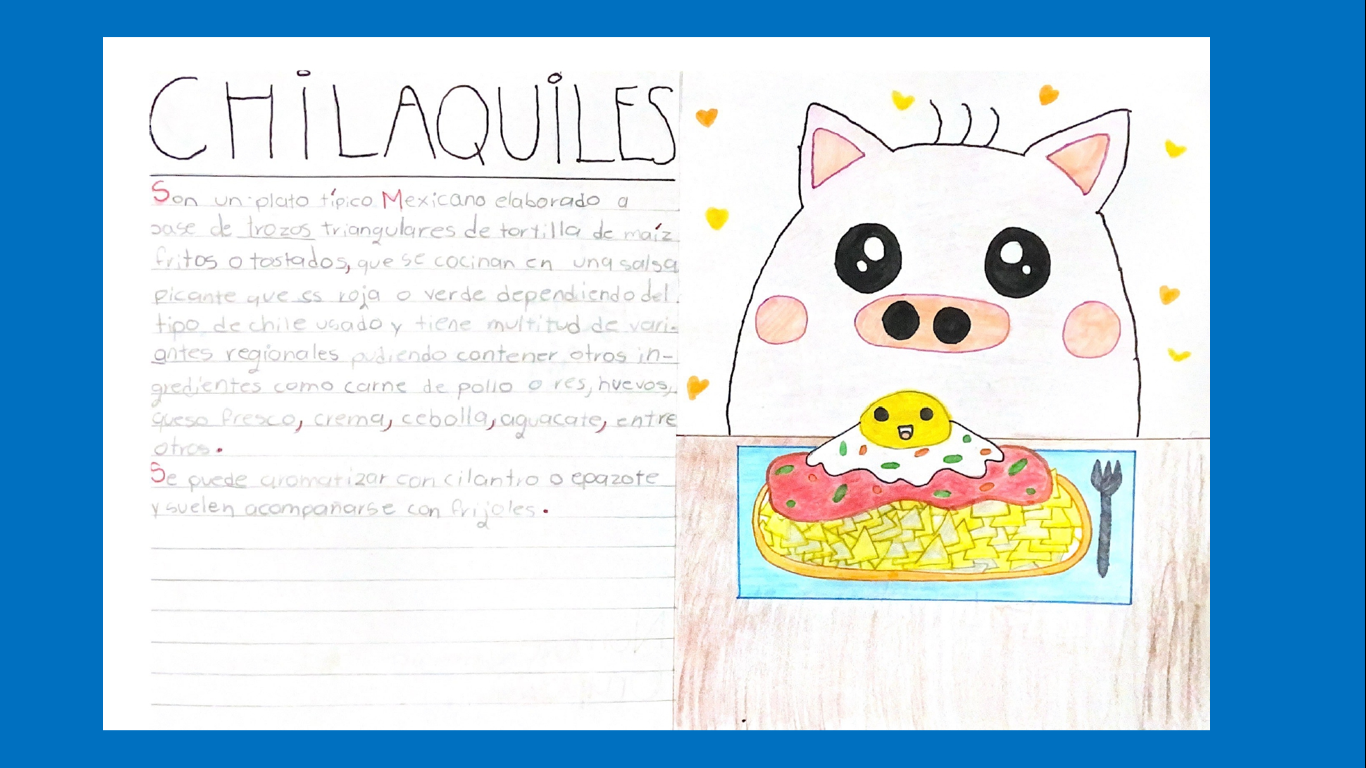 CHiLAQUiLES
Son un plato típico Mexicano elaborado a
base de trozos triangulares de tortilla de maíz
fritos o tostados, que se cocinan en una salsa
picante que es roja o verde dependiendo del
tipo de chile usado y tiene multitud de vari-
antes regionales pudiendo contener otros in-
gredientes como carne de pollo o res, huevos,
queso fresco, crema, cebolla, aguacate, entre
otros.
Se puede aromatizar con cilantro o epazote
y suelen acompañarse con frijoles.